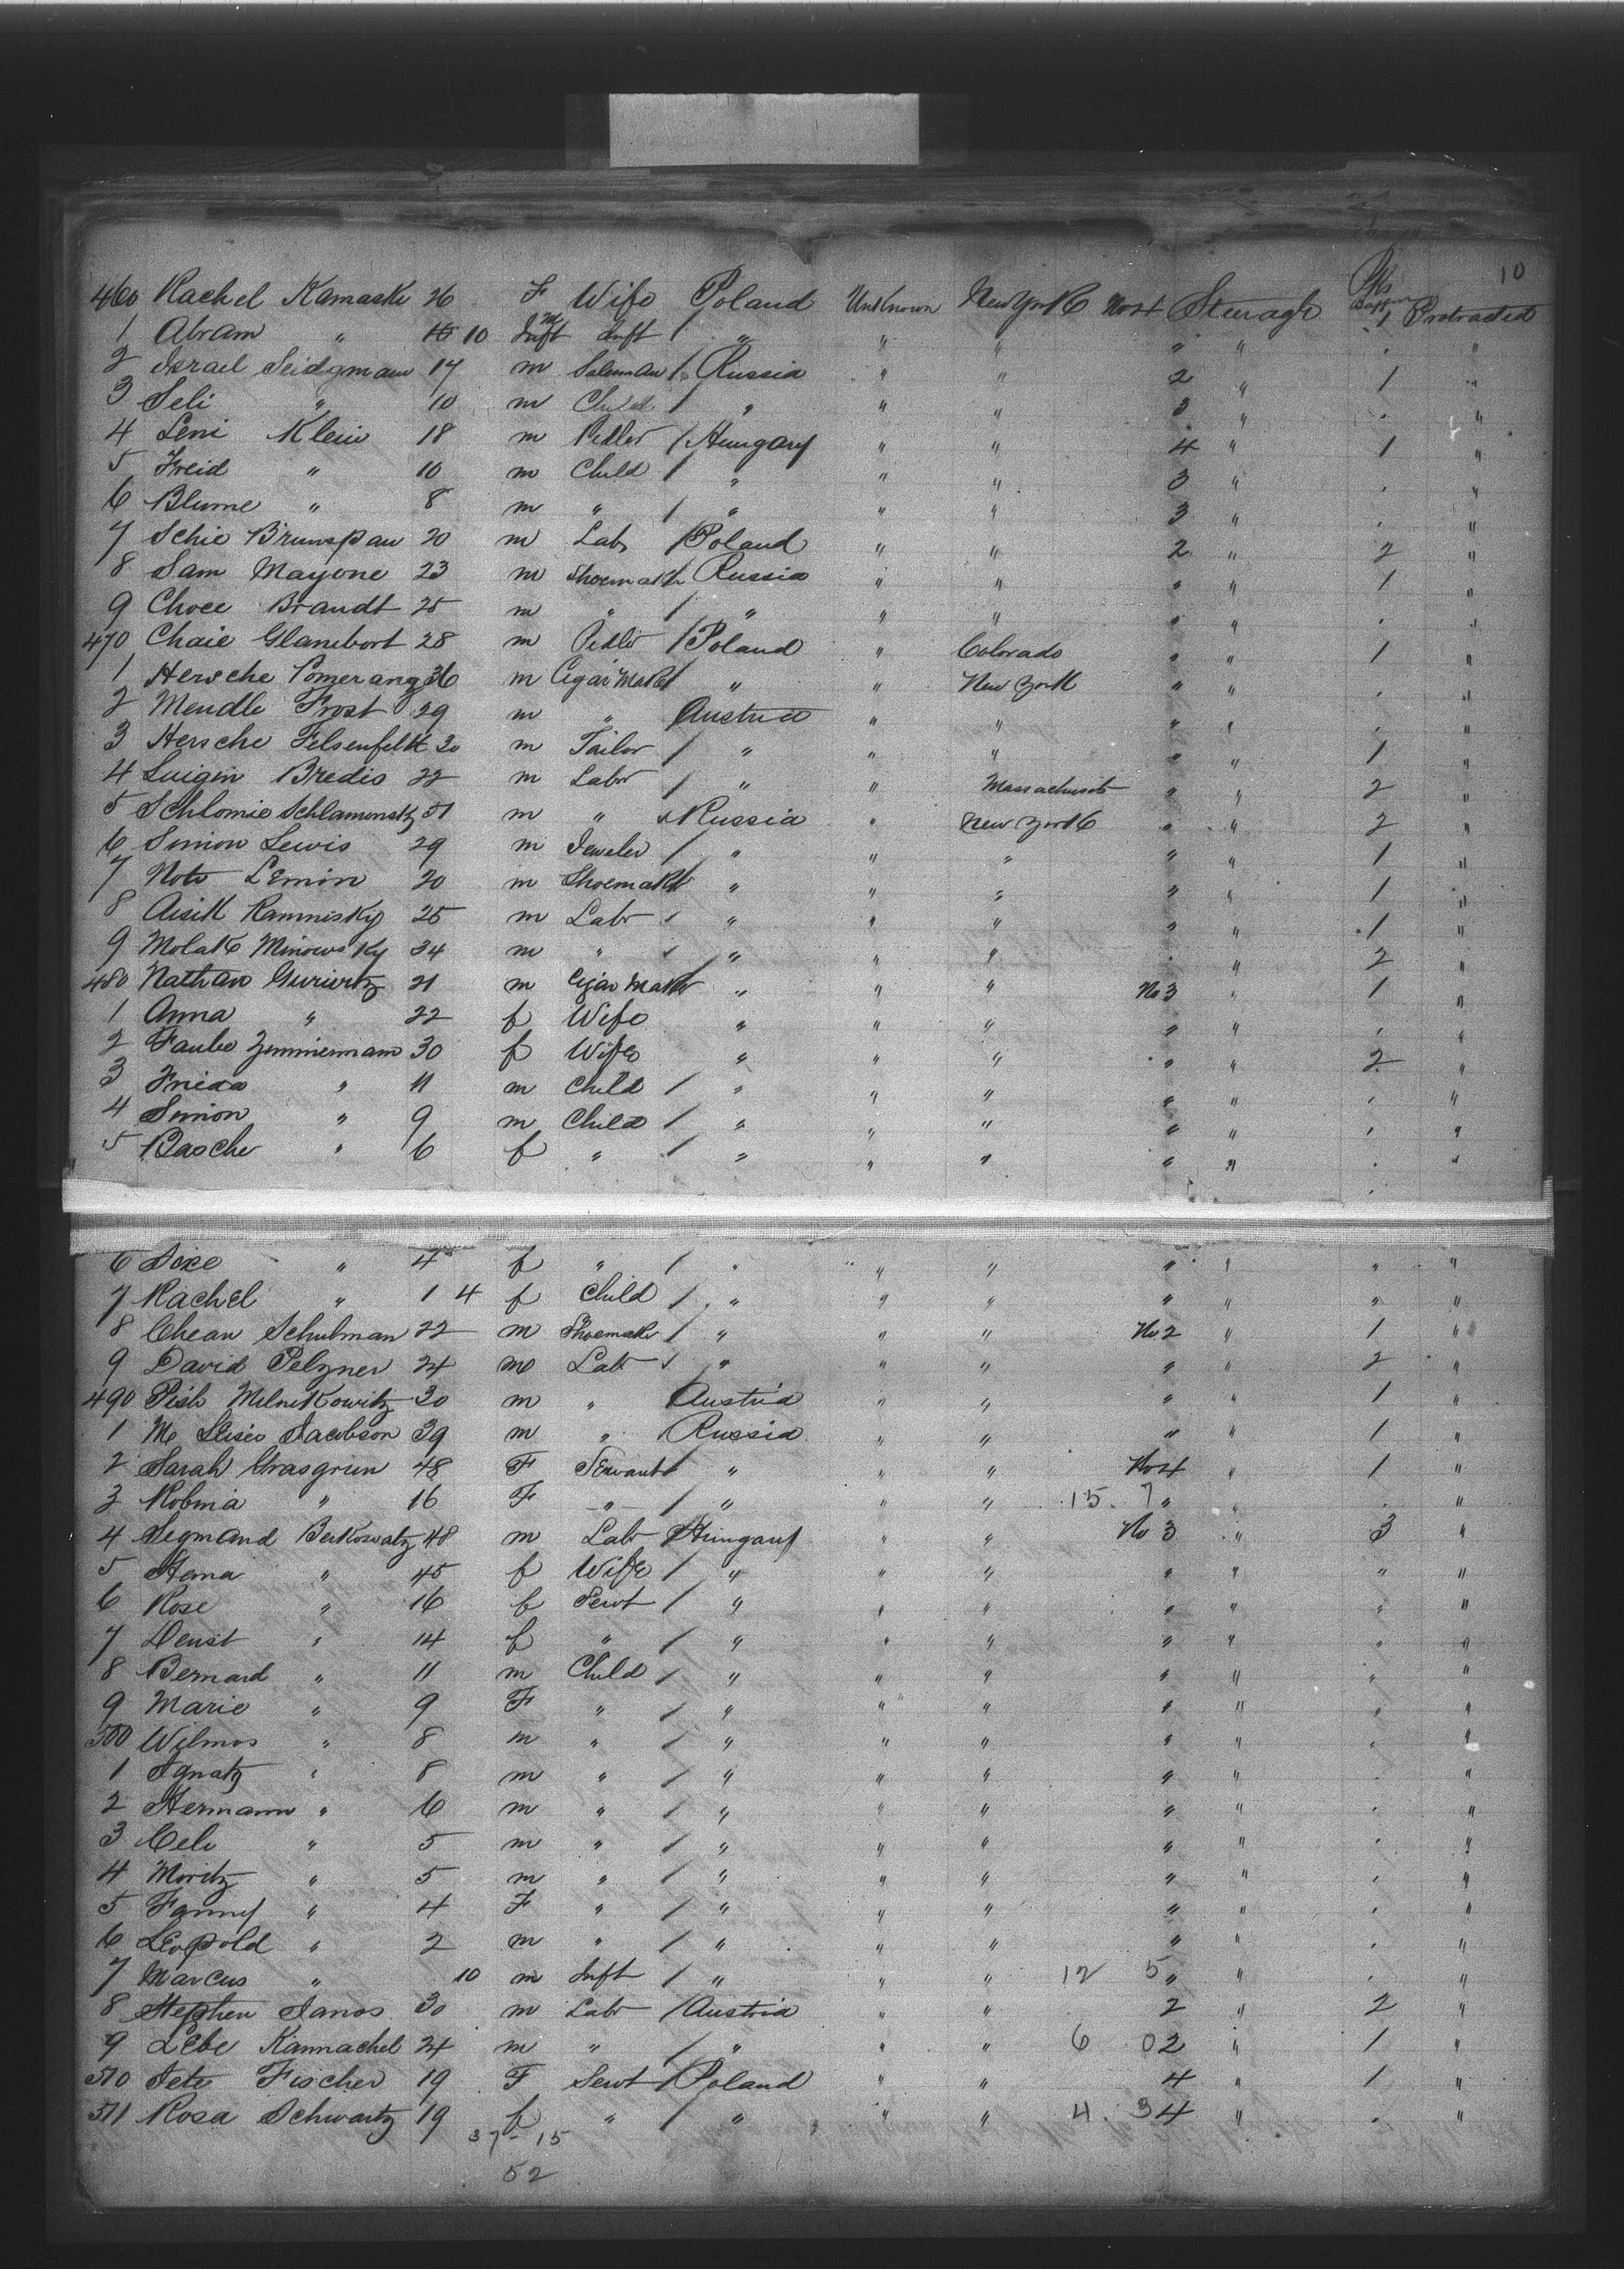 10
460 Rachel Kamaski 26 F Wife Poland Unknown New York No 4 Steerage 1 Protracted
1 Abram " 10 m Inft Inft / " " " " " . "
2 Israel Seidgmann 17 m Salesman / Russia " " 2 " 1 "
3 Seli " 10 m Child / " " " 3 " . "
4 Leni Klein 18 m Pedler / Hungary " " 4 " 1 "
5 Freid " 10 m Child / " " " 3 " . "
6 Blume " 8 m " / " " " 3 " . "
7 Schie Brunspan 20 m Labr / Poland " " 2 " 2 "
8 Sam Mayone 23 m Shoemaker Russia " " " " 1 "
9 Choee Brandt 25 m " / " " " " " . "
470 Chaie Glanebort 28 m Pedler / Poland " Colorado " " 1 "
1 Hersche Pomeranz 36 m Cigar Maker " " New York " " . "
2 Mendle Frost 29 m " Austria " " " " . "
3 Hersche Felsenfeldt 30 m Tailor / " " " " " 1 "
4 Luigin Bredio 22 m Labr / " " Massachusets " " 2 "
5 Schlomie Schlamonsky 51 m " Russia " New York " " 2 "
6 Simon Lewis 29 m Jeweler / " " " " " 1 "
7 Note Lemin 20 m Shoemaker " " " " " 1 "
8 Aisik Kamnisky 25 m Labr / " " " " " 1 "
9 Molak Minowsky 34 m " / " " " " " 2 "
480 Nathan Gurwitz 21 m Cigar Maker " " " No 3 " 1 "
1 Anna " 22 f Wife " " " " " . "
2 Taube Zimmermann 30 f Wife " " " " " 2 "
3 Frieda " 11 m Child / " " " " " . "
4 Simon " 9 m Child / " " " " " . "
5 Basche " 6 f " / " " " " " . "
6 " 4 f " / " " " " " " "
7 Rachel " 1 4 f Child / " " " " " " "
8 Chean Schulman 22 m Shoemaker / " " " No 2 " 1 "
9 David Pelzner 24 m Labr / " " " " " 2 "
490 Pish Milnikowitz 30 m " Austria " " " " 1 "
1 M Leiser Jacobson 39 m " Russia " " " " 1 "
2 Sarah Grasgrun 48 F Servant / " " " No 4 " 1 "
3 Robina " 16 F " / " " " 15. 7 " " . "
4 Segmand Berkowatz 48 m Labr Hungary " " No 3 " 3 "
5 Hema " 45 f Wife / " " " " " " "
6 Rose " 16 f Servt / " " " " " " "
7 " 14 f " / " " " " " " "
8 Bernard " 11 m Child / " " " " " " "
9 Marie " 9 F " / " " " " " " "
500 Wilmos " 8 m " / " " " " " " "
1 Ignatz " 8 m " / " " " " " . "
2 Hermann " 6 m " / " " " " " . "
3 Celi " 5 m " / " " " " " . "
4 Moritz " 5 m " / " " " " " . "
5 Fanny " 4 F " / " " " " " . "
6 Leopold " 2 m " / " " " " " . "
7 Marcus " 10 m Inft / " " " 12 5 " " . "
8 Stephen Janos 30 m Labr / Austria " " 2 " 2 "
9 Lebe Kannachel 24 m " / " " " 6 02 " 1 "
510 Jete Fischer 19 F Servt / Poland " " 4 " 1 "
511 Rosa Schwartz 19 f " / " " " 4. 34 " . "
37-15
52